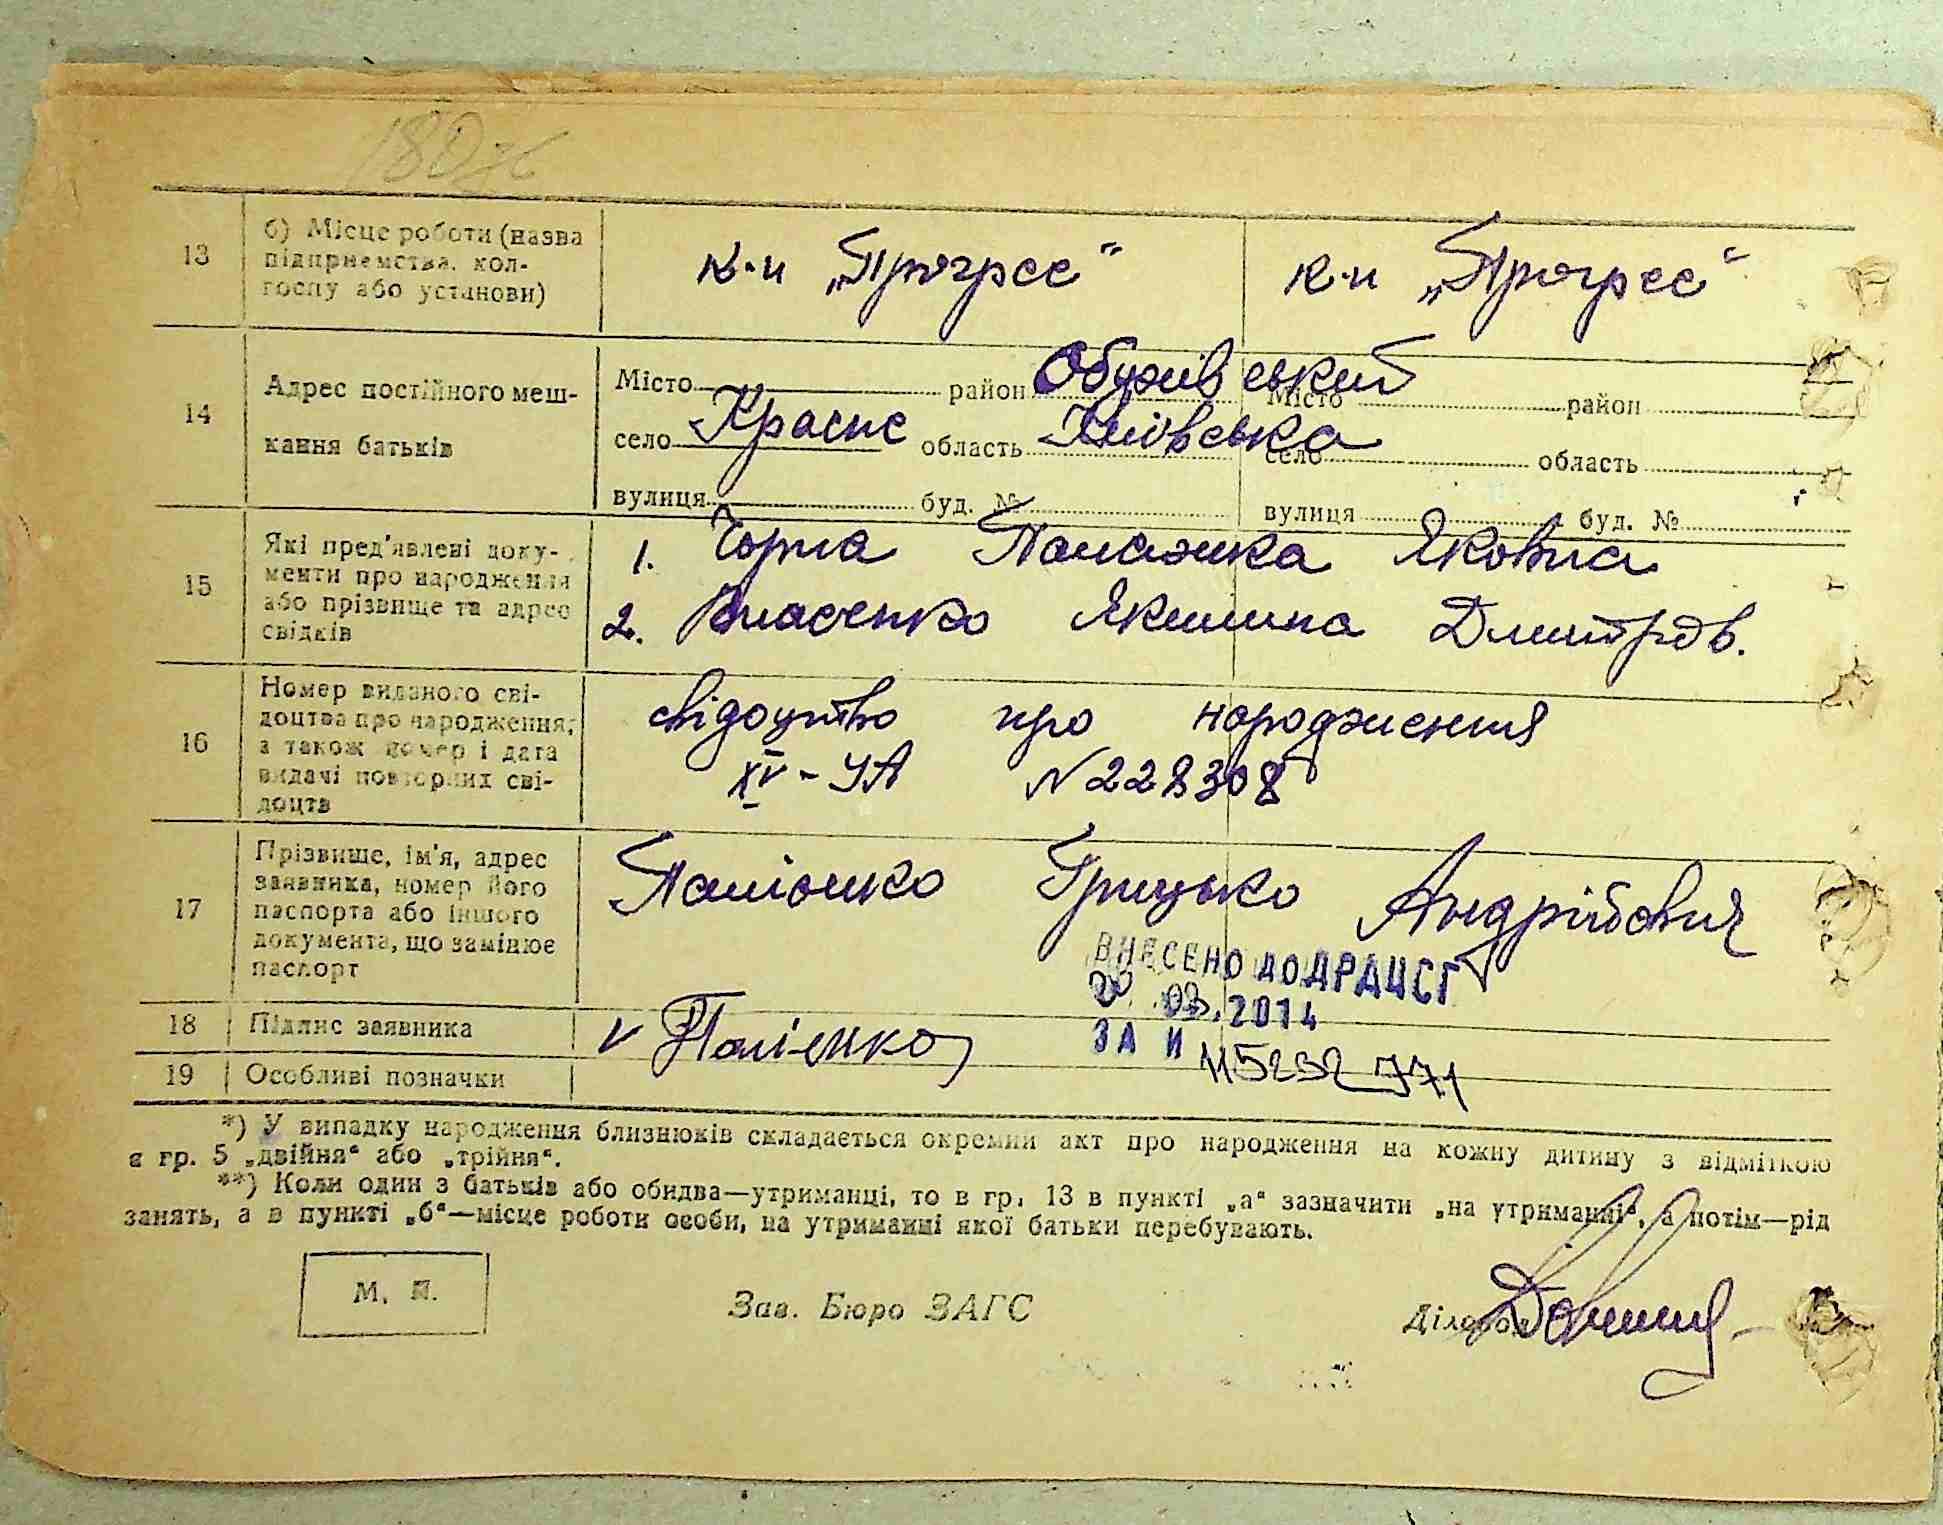 180ж
13 б) Місце роботи (назва підприємства, кол-госпу або установи) к-п „Прогрес“ к-п „Прогрес“
14 Адрес постійного меш-кання батьків
Місто район Обухівський Місто район
село Красне область Київська село область
вулиця буд. № вулиця буд. №
15 Які пред'явлені доку-менти про народження або прізвище та адрес свідків
1. Чорна Паламка Яковна
2. Власенко Якилина Дмитров.
16 Номер виданого сві-доцтва про народження, а також номер і дата видачі повторних сві-доцтв
свідоцтво про народження
XV-УА N 228308
17 Прізвище, ім'я, адрес заявника, номер його паспорта або іншого документа, що замінює паспорт
Палієнко Грицько Андрійович
ВНЕСЕНО ДО ДРАЦСГ
20 02. 2014
18 Підпис заявника v Палієнко
ЗА И 115232771
19 Особливі позначки
*) У випадку народження близнюків складається окремий акт про народження на кожну дитину з відміткою
в гр. 5 „двійня“ або „трійня“.
**) Коли один з батьків або обидва—утриманці, то в гр. 13 в пункті „а“ зазначити „на утриманні“, а потім—рід
занять, а в пункті „б“—місце роботи особи, на утриманні якої батьки перебувають.
М. П.
Зав. Бюро ЗАГС
Діловод